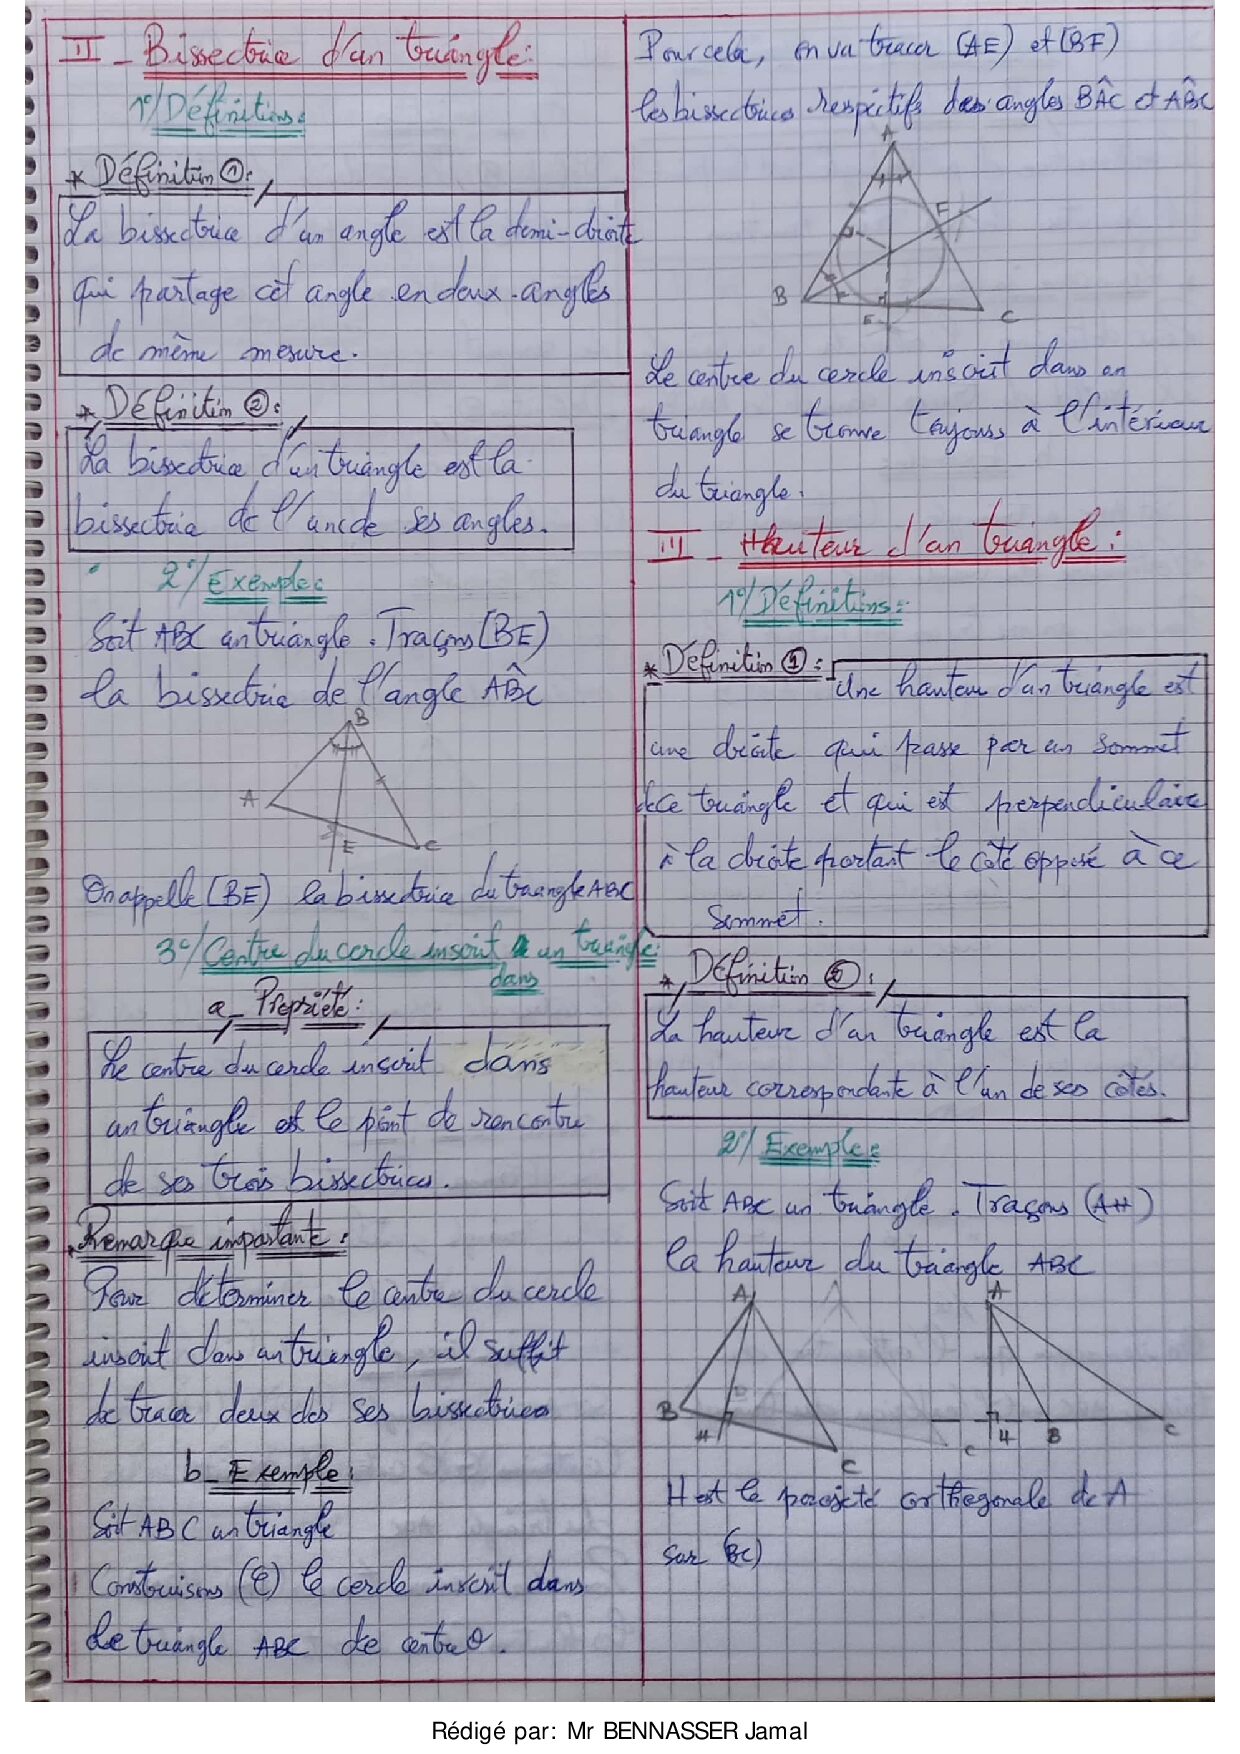 II - Bissectrice d'un triangle:
1°/ Définitions:
* Définition ①:
La bissectrice d'un angle est la demi-droite
qui partage cet angle en deux angles
de même mesure.
* Définition ②:
La bissectrice d'un triangle est la
bissectrice de l'un de ses angles.
2°/ Exemple:
Soit ABC un triangle. Traçons [BE)
la bissectrice de l'angle AB̂C
B
A
E
C
On appelle [BE) la bissectrice du triangle ABC
3°/ Centre du cercle inscrit un triangle:
dans
a - Propriété:
Le centre du cercle inscrit dans
un triangle est le point de rencontre
de ses trois bissectrices.
Remarque importante:
Pour déterminer le centre du cercle
inscrit dans un triangle, il suffit
de tracer deux des ses bissectrices
b - Exemple:
Soit ABC un triangle
Construisons (C) le cercle inscrit dans
le triangle ABC de centre O.
Pour cela, on va tracer [AE) et [BF)
les bissectrices respectifs des angles BÂC et AB̂C
A
F
B
E
C
Le centre du cercle inscrit dans un
triangle se trouve toujours à l'intérieur
du triangle.
III - Hauteur d'un triangle:
1°/ Définitions:
* Définition ①:
Une hauteur d'un triangle est
une droite qui passe par un sommet
de ce triangle et qui est perpendiculaire
à la droite portant le côté opposé à ce
sommet.
* Définition ②:
La hauteur d'un triangle est la
hauteur correspondante à l'un de ses côtés.
2°/ Exemple:
Soit ABC un triangle. Traçons (AH)
la hauteur du triangle ABC
A
A
B
H
C
H
B
C
H est le projeté orthogonale de A
sur (BC)
Rédigé par: Mr BENNASSER Jamal